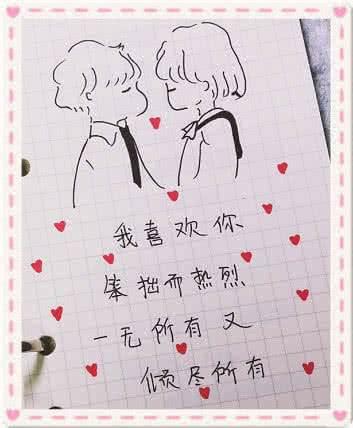 我喜欢你
笨拙而热烈
一无所有又
倾尽所有